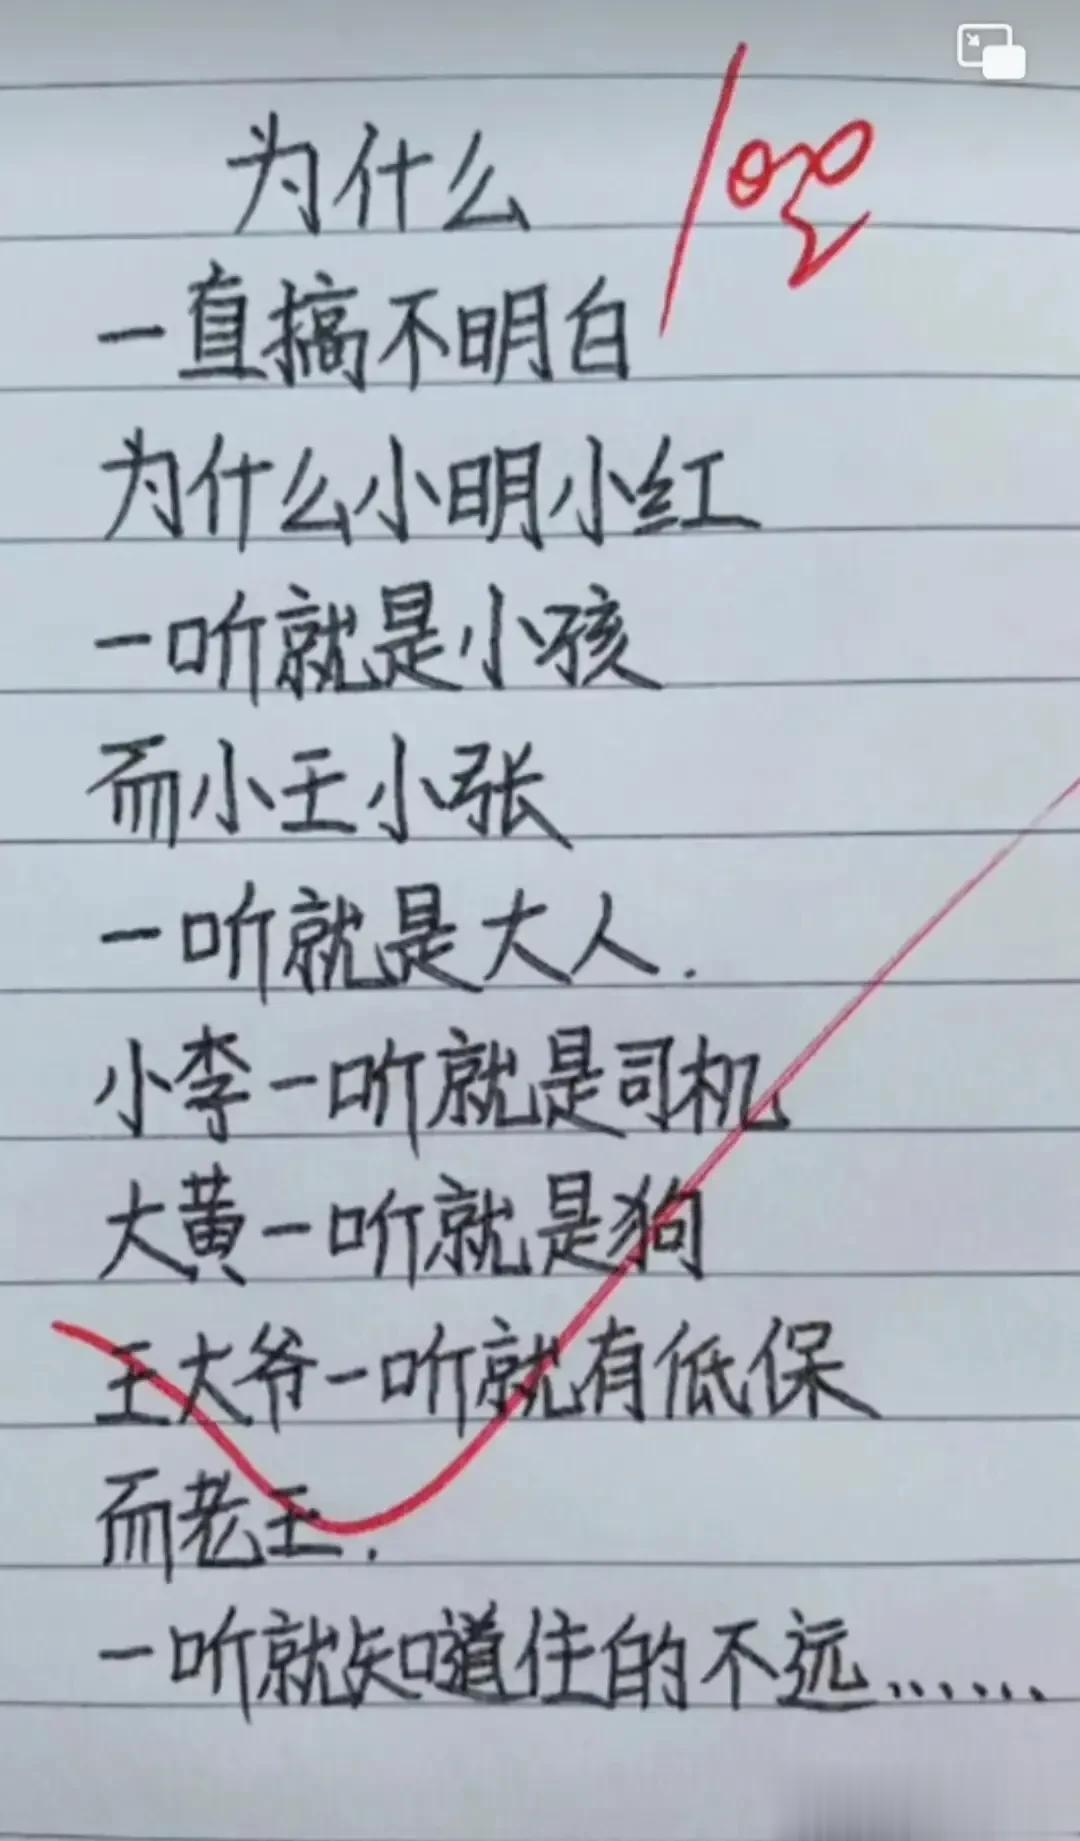 为什么
100
一直搞不明白
为什么小明小红
一听就是小孩
而小王小张
一听就是大人.
小李一听就是司机
大黄一听就是狗
王大爷一听就有低保
而老王.
一听就知道住的不远......